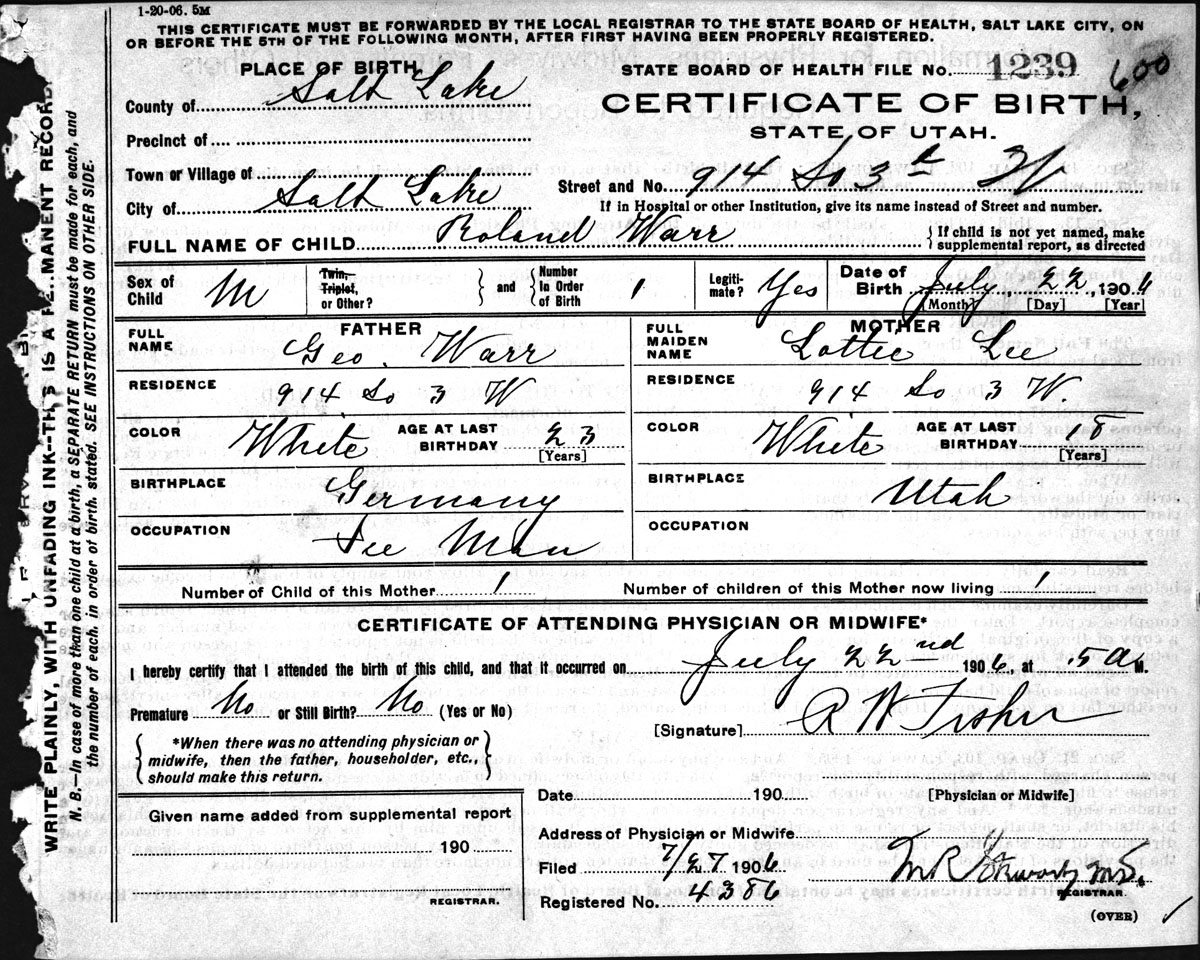 1-20-06. 5M
THIS CERTIFICATE MUST BE FORWARDED BY THE LOCAL REGISTRAR TO THE STATE BOARD OF HEALTH, SALT LAKE CITY, ON
OR BEFORE THE 5TH OF THE FOLLOWING MONTH, AFTER FIRST HAVING BEEN PROPERLY REGISTERED.
PLACE OF BIRTH
STATE BOARD OF HEALTH FILE No. 1239 600
County of Salt Lake
CERTIFICATE OF BIRTH,
STATE OF UTAH.
Precinct of
Town or Village of
Street and No. 914 So 3d
City of Salt Lake
If in Hospital or other Institution, give its name instead of Street and number.
FULL NAME OF CHILD Roland Warr
{ If child is not yet named, make
supplemental report, as directed
Sex of Child M
Twin, Triplet, or Other? } and { Number In Order of Birth 1
Legiti-mate? Yes
Date of Birth July 22, 1906
[Month] [Day] [Year]
FATHER
FULL NAME Geo. Warr
RESIDENCE 914 So 3 W
COLOR White AGE AT LAST BIRTHDAY 23
[Years]
BIRTHPLACE Germany
OCCUPATION Ice Man
MOTHER
FULL MAIDEN NAME Lottie Lee
RESIDENCE 914 So 3 W.
COLOR White AGE AT LAST BIRTHDAY 18
[Years]
BIRTHPLACE Utah
OCCUPATION
Number of Child of this Mother 1 Number of children of this Mother now living 1
CERTIFICATE OF ATTENDING PHYSICIAN OR MIDWIFE*
I hereby certify that I attended the birth of this child, and that it occurred on July 22nd 1906, at 5 A M.
Premature No or Still Birth? No (Yes or No)
[Signature] R W Fisher
[Physician or Midwife]
{ *When there was no attending physician or
midwife, then the father, householder, etc.,
should make this return. }
Date 190
Given name added from supplemental report
190
REGISTRAR.
Address of Physician or Midwife
Filed 7/27 1906
M.D.
REGISTRAR.
Registered No. 4386
(OVER)
WRITE PLAINLY, WITH UNFADING INK--THIS IS A PERMANENT RECORD
N. B.—In case of more than one child at a birth, a SEPARATE RETURN must be made for each, and
the number of each, in order of birth, stated. SEE INSTRUCTIONS ON OTHER SIDE.